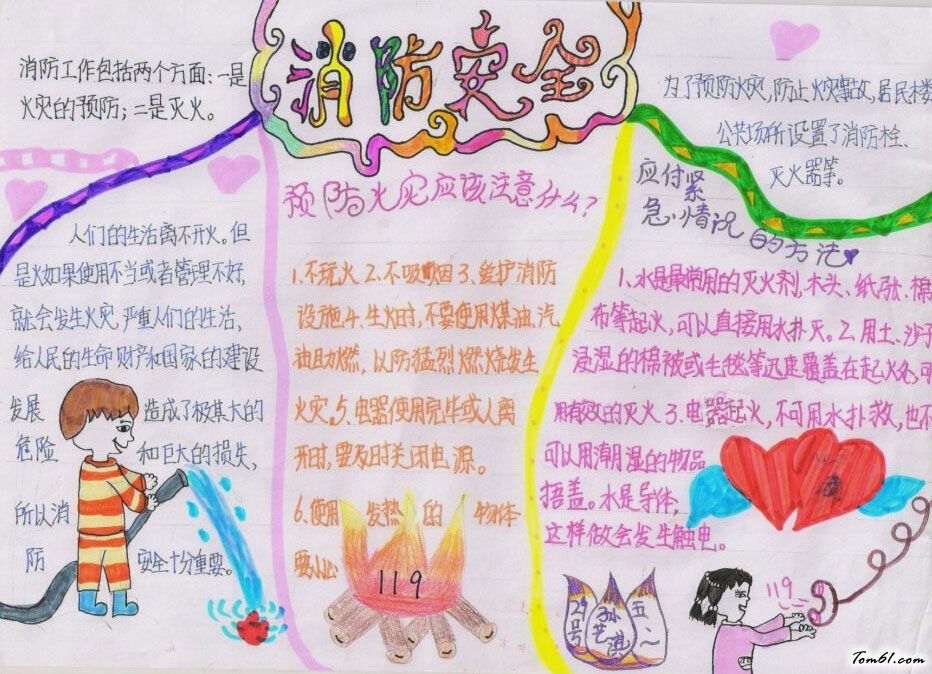 消防安全
消防工作包括两个方面：一是
火灾的预防；二是灭火。
人们的生活离不开火。但
是火如果使用不当或者管理不好，
就会发生火灾，严重人们的生活，
给人民的生命财产和国家的建设
发展 造成了极其大的
危险 和巨大的损失，
所以消
防 安全十分重要。
预防火灾应该注意什么？
1.不玩火2.不吸烟3.爱护消防
设施.4.生火时，不要使用煤油、汽
油助燃，以防猛烈燃烧发生
火灾.5.电器使用完毕或人离
开时，要及时关闭电源。
6.使用 发热 的 物体
要小心
119
为了预防火灾，防止火灾事故，居民楼
公共场所设置了消防栓、
灭火器等。
应付紧
急情况
的方法
1.水是最常用的灭火剂，木头、纸张、棉
布等起火，可以直接用水扑灭。2.用土、沙子
浸湿的棉被或毛毯等迅速覆盖在起火处，可
用有效的灭火3.电器起火，不可用水扑救，也不
可以用潮湿的物品
捂盖。水是导体，
这样做会发生触电。
五~
孙艺
29号
119
Tom61.com